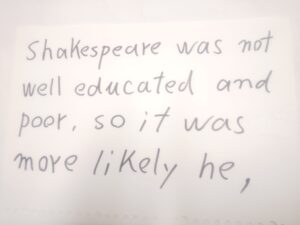 Shakespeare was not
well educated and
poor, so it was
more likely he,